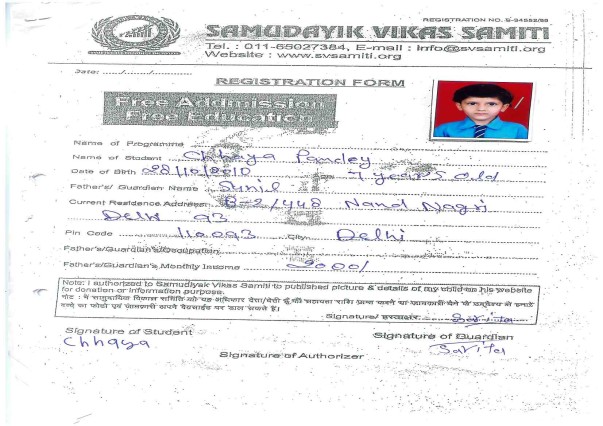 REGISTRATION NO. S-34552/98
SAMUDAYIK VIKAS SAMITI
Tel. : 011-65027384, E-mail : info@svsamiti.org
Website : www.svsamiti.org
Date: ....../....../............
REGISTRATION FORM
Free Addmission
Free Education
Name of Programme
Name of Student Chhaya Pandey
Date of Birth 28/10/2010 7 years old
Father's/ Guardian Name Sunil
Current Residence Address: B-2/448 Nand Nagri
Delhi 93
Pin Code 110093 City Delhi
Father's/Guardian's Occupation
Father's/Guardian's Monthly Income 3000/
Note: I authorized to Samudiyak Vikas Samiti to published picture & details of my child on his website
for donation or information purpose.
Signature/ हस्ताक्षर Sarita
Signature of Student
Signature of Guardian
Chhaya
Sarita
Signature of Authorizer